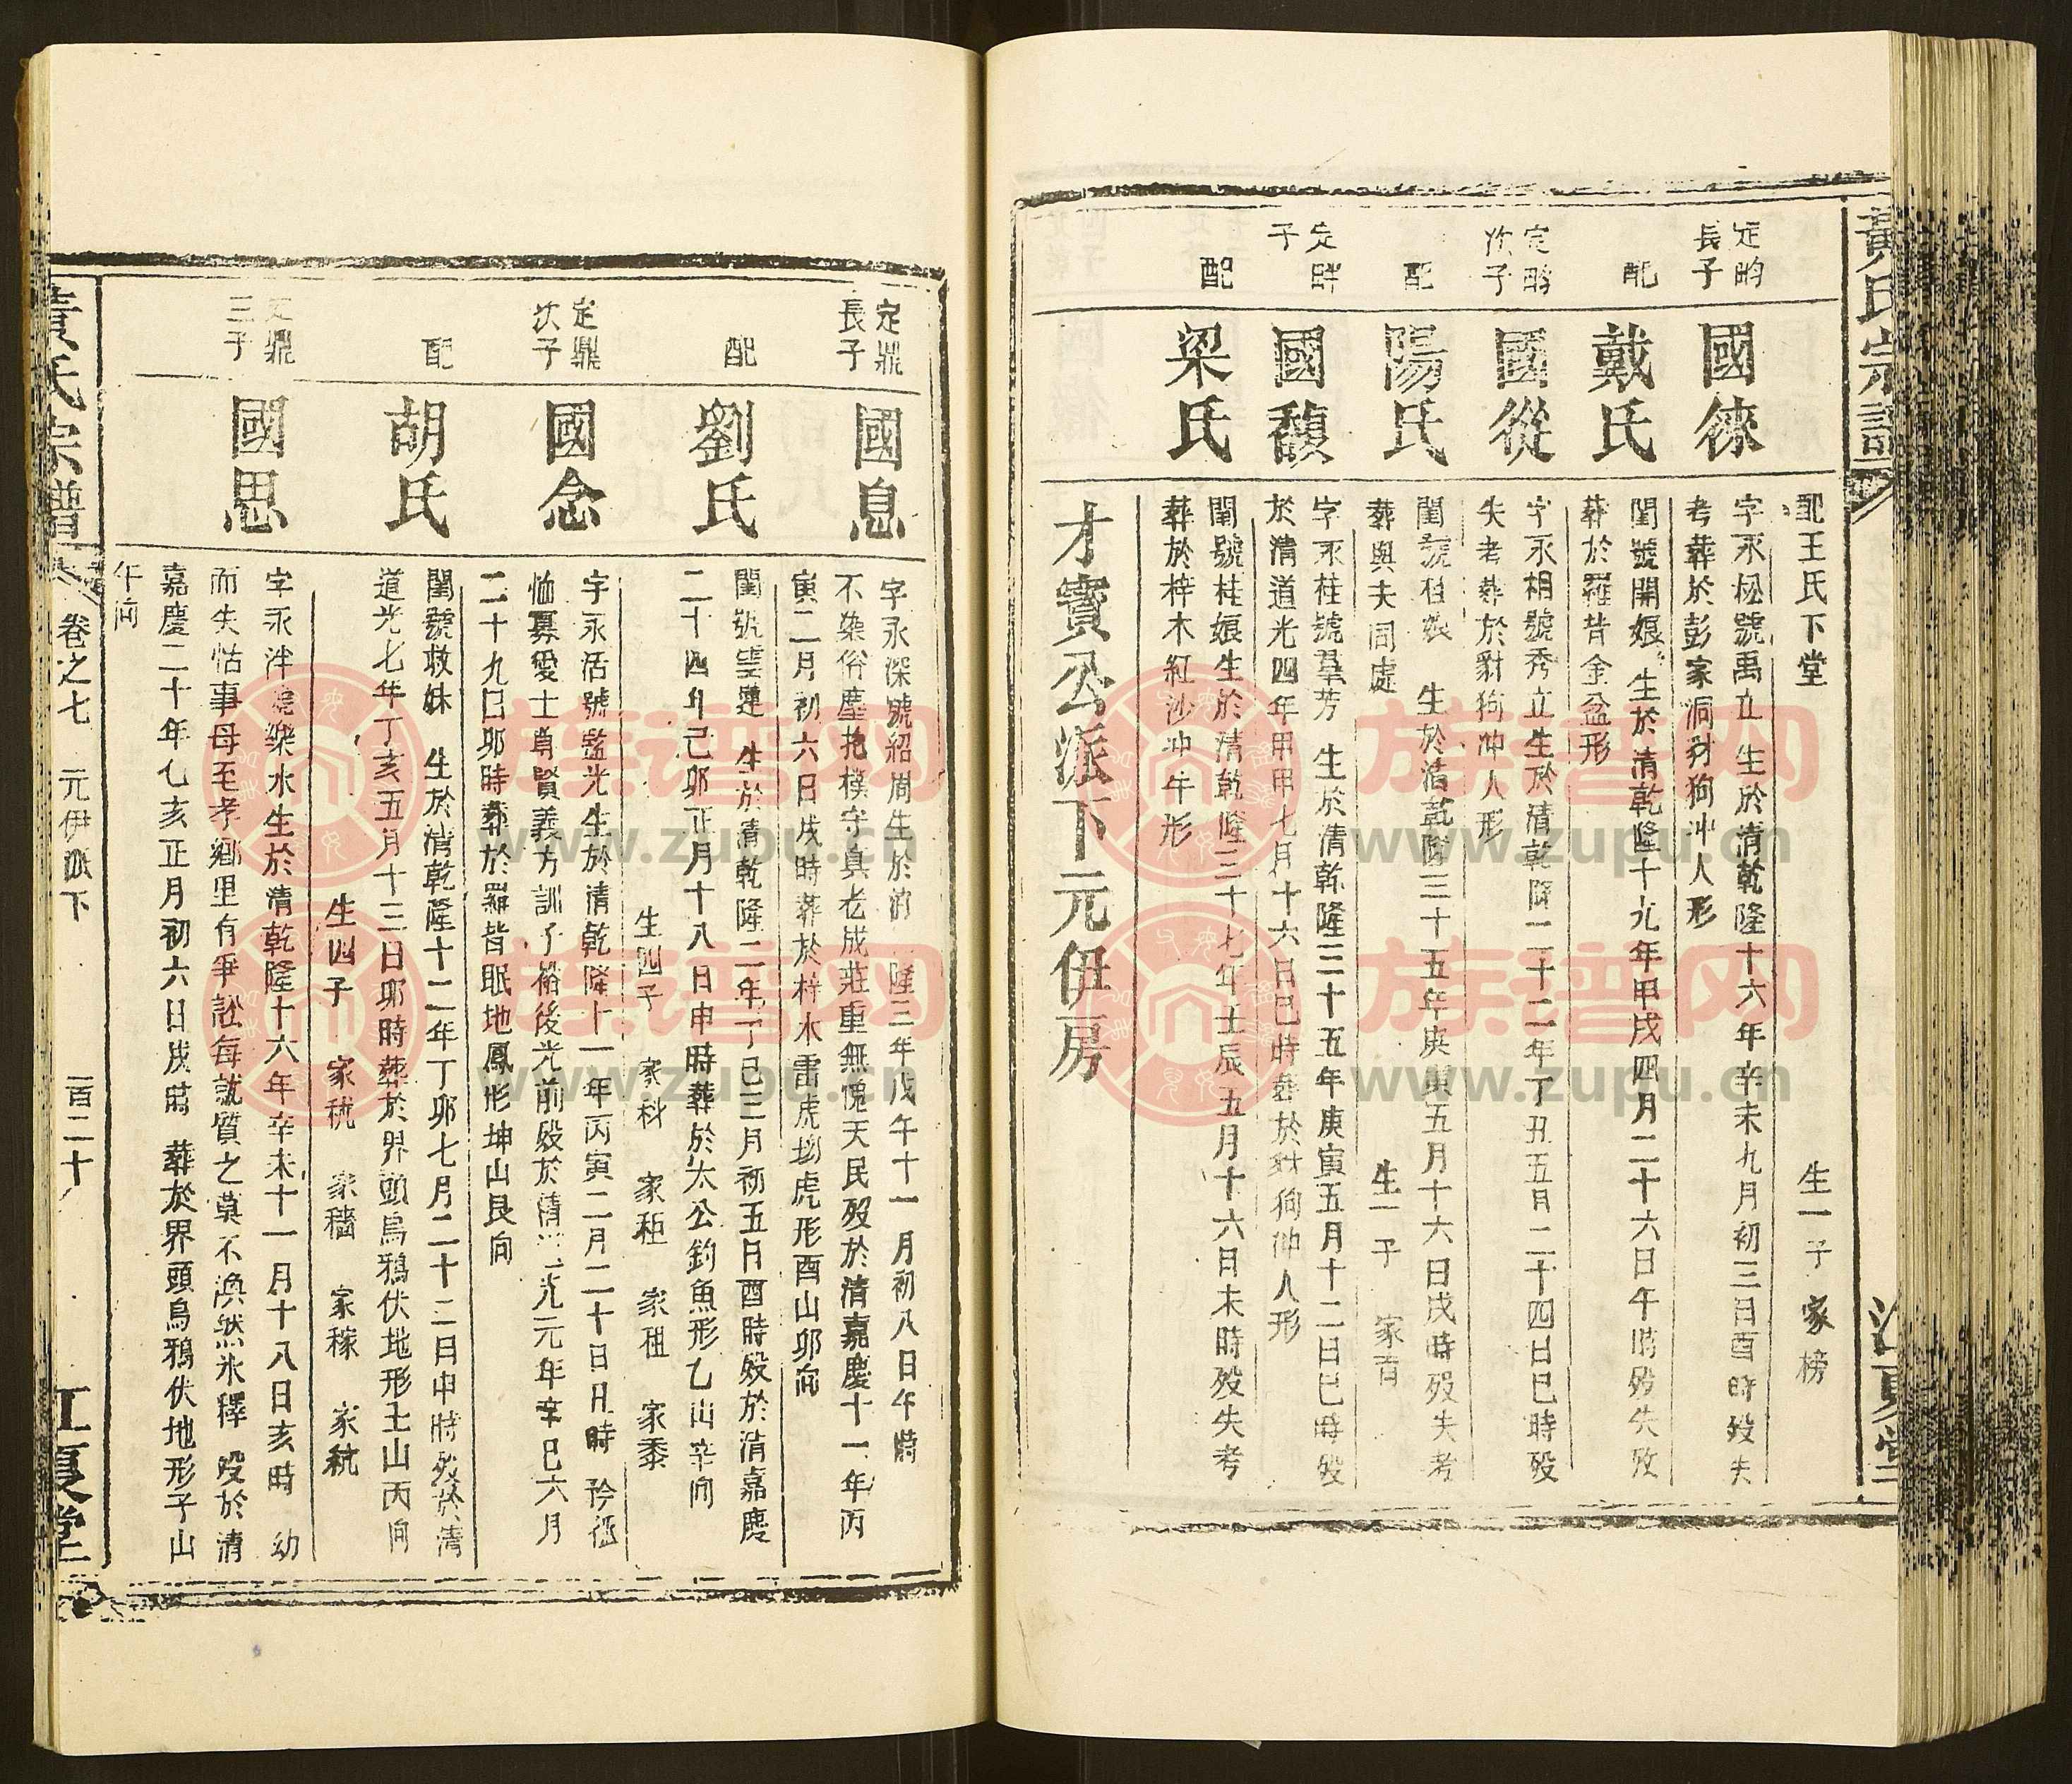 黃氏宗譜
江夏堂
配王氏下堂
生一子 家榜
定畇長子
國徠
字永松號禹立 生於清乾隆十六年辛未九月初三日酉時歿失
考葬於彭家洞豺狗冲人形
配
戴氏
閨號開娘 生於清乾隆十九年甲戌四月二十六日午時歿失攷
葬於羅背金盆形
定畇次子
國從
字永相號秀立生於清乾隆二十二年丁丑五月二十四日巳時歿
失考葬於豺狗冲人形
配
陽氏
閨號桂娘 生於清乾隆三十五年庚寅五月十六日戌時歿失考
葬與夫同處
生一子 家育
定畔子
國馥
字永桂號羣芳 生於清乾隆三十五年庚寅五月十二日巳時歿
於清道光四年甲申七月十六日巳時葬於豺狗冲人形
配
梁氏
閨號桂娘生於清乾隆三十七年壬辰五月十六日未時歿失考
葬於梓木紅沙冲午形
才寶公派下元伊房
定鼎長子
國息
字永深號紹周生於清 隆三年戊午十一月初八日午時
不染俗塵抱樸守真老成莊重無愧天民歿於清嘉慶十一年丙
寅二月初六日戌時葬於梓木雷虎坳虎形酉山卯向
配
劉氏
閨號 蓮 生於清乾隆二年丁巳三月初五日酉時歿於清嘉慶
二十四年己卯正月十八日申時葬於太公釣魚形乙山辛向
生四子 家科 家秬 家租 家黍
定鼎次子
國念
字永活號監光生於清乾隆十一年丙寅二月二十日丑時 矜孤
恤寡愛士尊賢義方訓子裕後光前歿於清 光元年辛巳六月
二十九日卯時葬於羅背眠地鳳形坤山艮向
配
胡氏
閨號救妹 生於清乾隆十二年丁卯七月二十二日申時歿於清
道光七年丁亥五月十三日卯時葬於界頭烏鴉伏地形壬山丙向
生四子 家秕 家穡 家稼 家統
定鼎三子
國思
字永泮號樂水生於清乾隆十六年辛未十一月十八日亥時 幼
而失怙事母至孝鄉里有爭訟每就質之莫不渙然氷釋 歿於清
嘉慶二十年乙亥正月初六日戌時 葬於界頭烏鴉伏地形子山
午向
黃氏宗譜
卷之七 元伊派下
一百二十
江夏堂
族谱网
www.zupu.cn
族谱网
www.zupu.cn
族谱网
www.zupu.cn
族谱网
www.zupu.cn